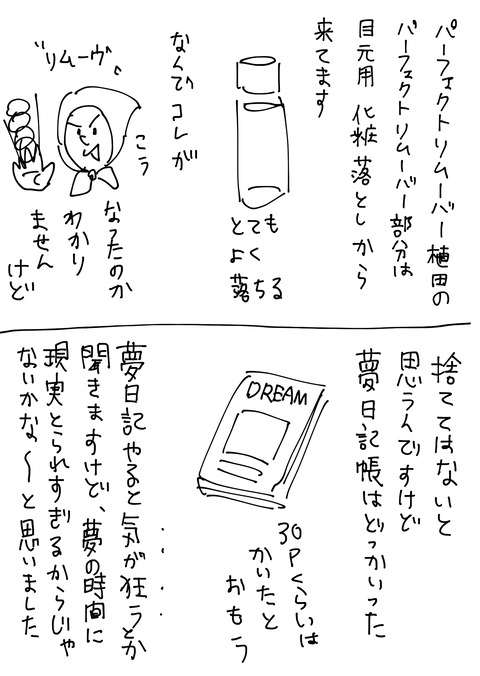 パーフェクトリムーバー植田の
パーフェクトリムーバー部分は
目元用 化粧落としから
来てます
とても
よく
落ちる
なんで コレが
こう
なったのか
わかり
ません
けど
"リムーヴ"
て
捨ててはないと
思うんですけど
夢日記帳はどっかいった
DREAM
30Pくらいは
かいたと
おもう
夢日記やると気が狂うとか
聞きますけど、夢の時間に
現実とられすぎるからじゃ
ないかな〜と思いました